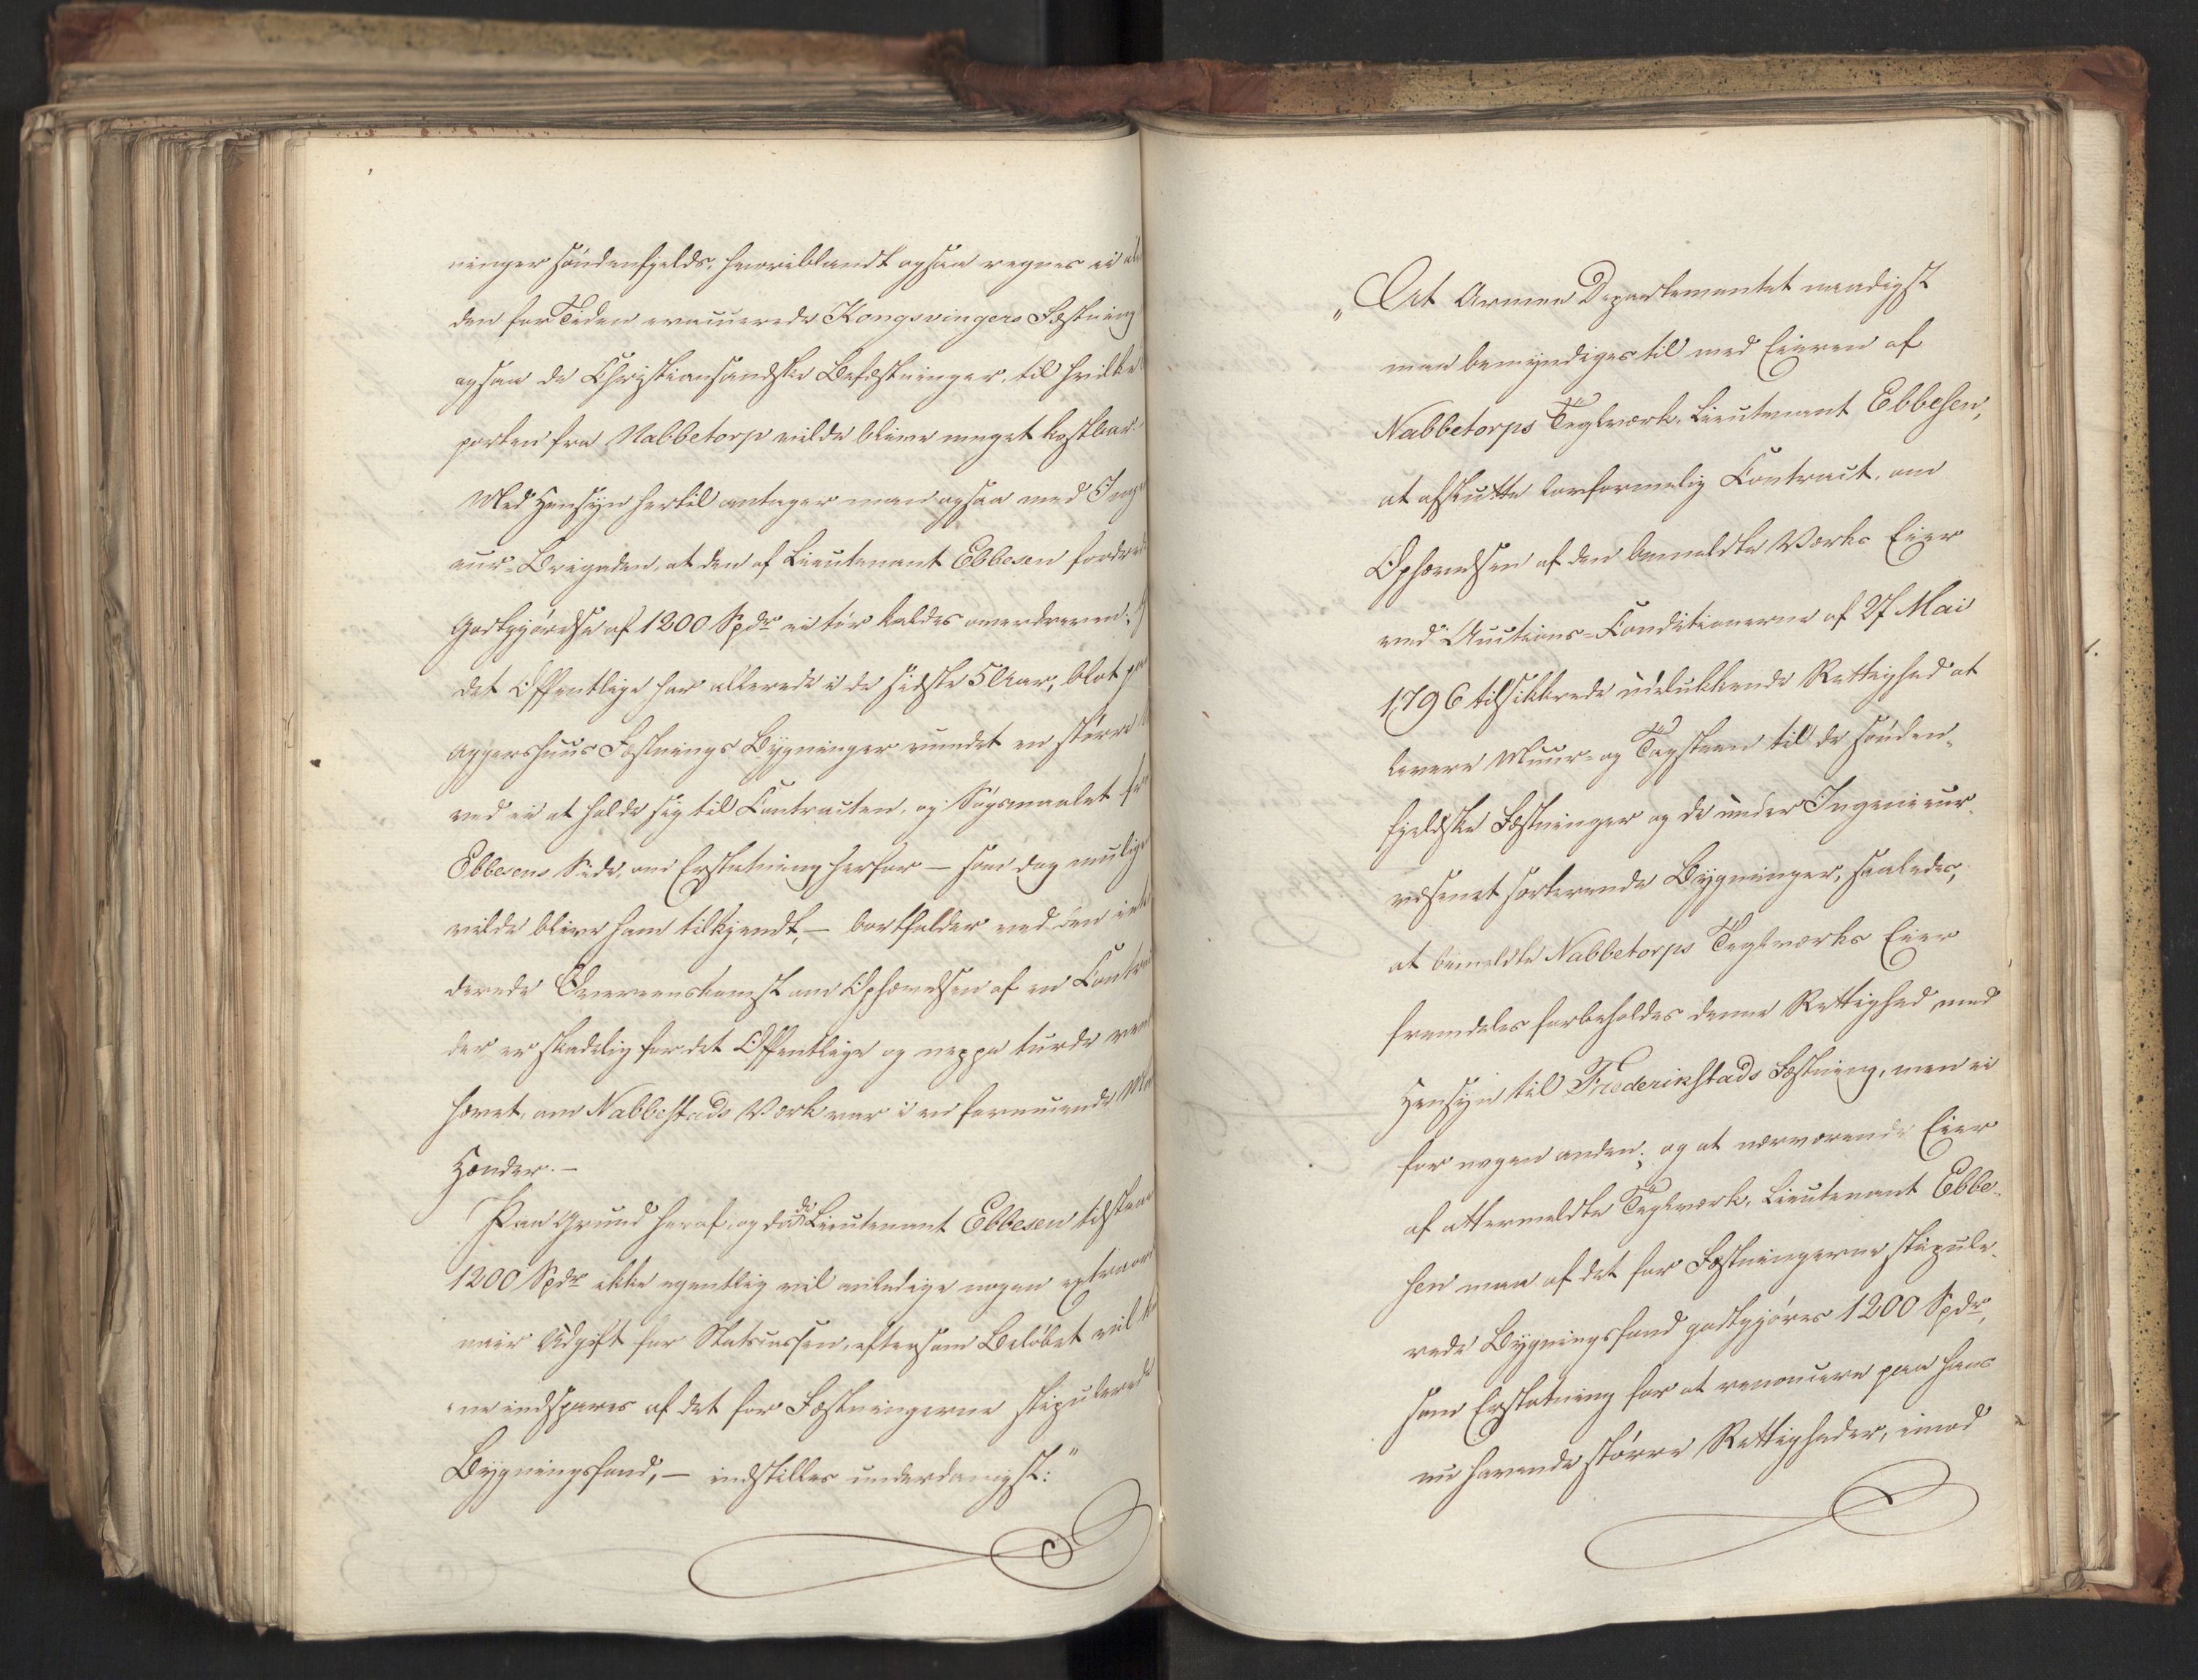 ninger søndenfjelds, hvoriblandt ogsaa regnes ei al
den for Tiden evacuerede Kongsvingers Fæstning
ogsaa de Christiansandske Befæstninger, til hvilke
porten fra Nabbetorp vilde blive meget kostbar.
Med Hensyn hertil antager man ogsaa med Inge
eur-Brigaden, at den af Lieutenant Ebbesen fordred
Godtgjørelse af 1200 Spdr ei tør kaldes overdreven;
det Offentlige har allerede i de sidste 5 Aar, blot p
Aggershuus Fæstnings Bygninger vundet en større
ved ei at holde sig til Contracten, og Søgsmaalet fr
Ebbesens Side, om Erstatning herfor — som dog mulige
vilde blive ham tilkjendt, — bortfalder ved den
derede Overeenskomst om Ophævelsen af en Contr
der er skadelig for det Offentlige og neppe turde
hævet, om Nabbestads Værk var i en formuende Ma
Hænder. —
Paa Grund heraf, og da de Lieutenant Ebbesen tilstaa
1200 Spdr ikke egentlig vil anledige nogen extraor
nair Udgift for Statscassen, eftersom Beløbet vil k
ne indspares af det for Fæstningerne stipulerede
Bygningsfond, — indstilles underdanigst:"
„At Armee Departementet naadigst
maa bemyndiges til med Eieren af
Nabbetorps Teglværk, Lieutenant Ebbesen,
at afslutte lovformelig Contract, om
Ophævelsen af den bemeldte Værks Eier
ved Auctions-Conditionerne af 27 Mai
1796 tilsikkrede udelukkende Rettighed at
levere Muur- og Tagsteen til de sønden-
fjeldske Fæstninger og de under Ingenieur-
væsenet sorterende Bygninger, saaledes,
at bemeldte Nabbetorps Teglværks Eier
fremdeles forbeholdes denne Rettighed med
Hensyn til Frederikstads Fæstning, men ei
for nogen anden; og at nærværende Eier
af oftermeldte Teglværk, Lieutenant Ebbe-
sen maa af det for Fæstningerne stipule-
rede Bygningsfond godtgjøres 1200 Spdr,
som Erstatning for at renoncere paa hans
nu havende større Rettigheder, imod